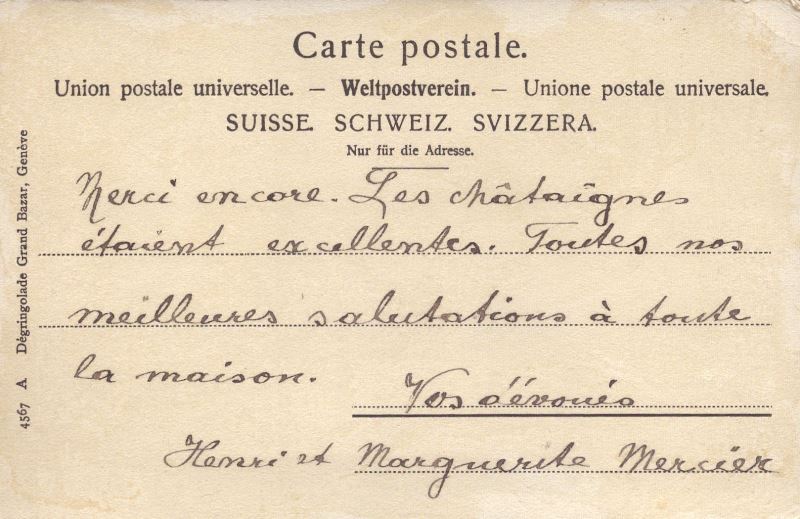 Carte postale.
Union postale universelle. — Weltpostverein. — Unione postale universale.
SUISSE. SCHWEIZ. SVIZZERA.
Nur für die Adresse.
Merci encore. Les châtaignes
étaient excellentes. Toutes nos
meilleures salutations à toute
la maison.
Vos dévoués
Henri et Marguerite Mercier
4567 A Dégringolade Grand Bazar, Genève